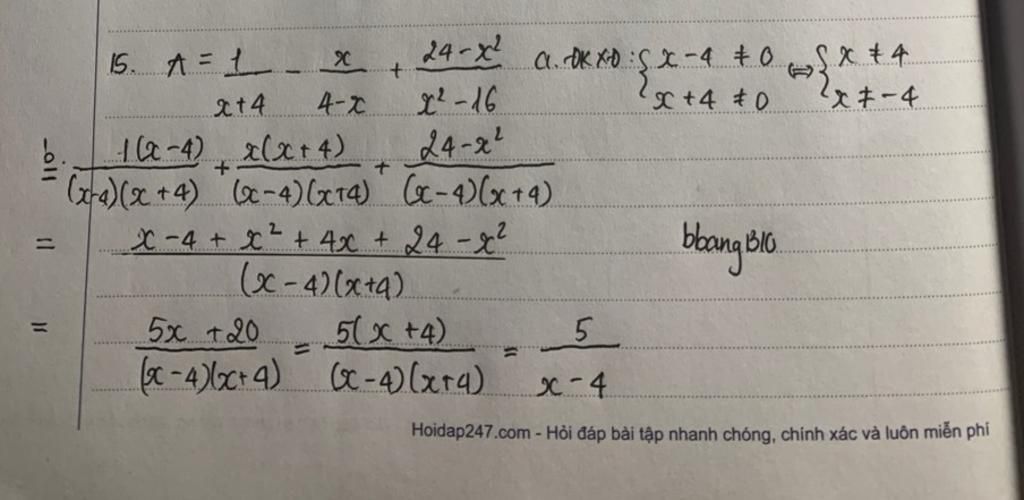 15. A = 1/(x+4) - x/(4-x) + (24-x²)/(x²-16) a. ĐKXĐ: { x-4 ≠ 0 ; x+4 ≠ 0 ⇔ { x ≠ 4 ; x ≠ -4
b. = 1(x-4)/((x-4)(x+4)) + x(x+4)/((x-4)(x+4)) + (24-x²)/((x-4)(x+4))
= (x-4+x²+4x+24-x²)/((x-4)(x+4)) bbangBIG
= (5x+20)/((x-4)(x+4)) = 5(x+4)/((x-4)(x+4)) = 5/(x-4)
Hoidap247.com - Hỏi đáp bài tập nhanh chóng, chính xác và luôn miễn phí